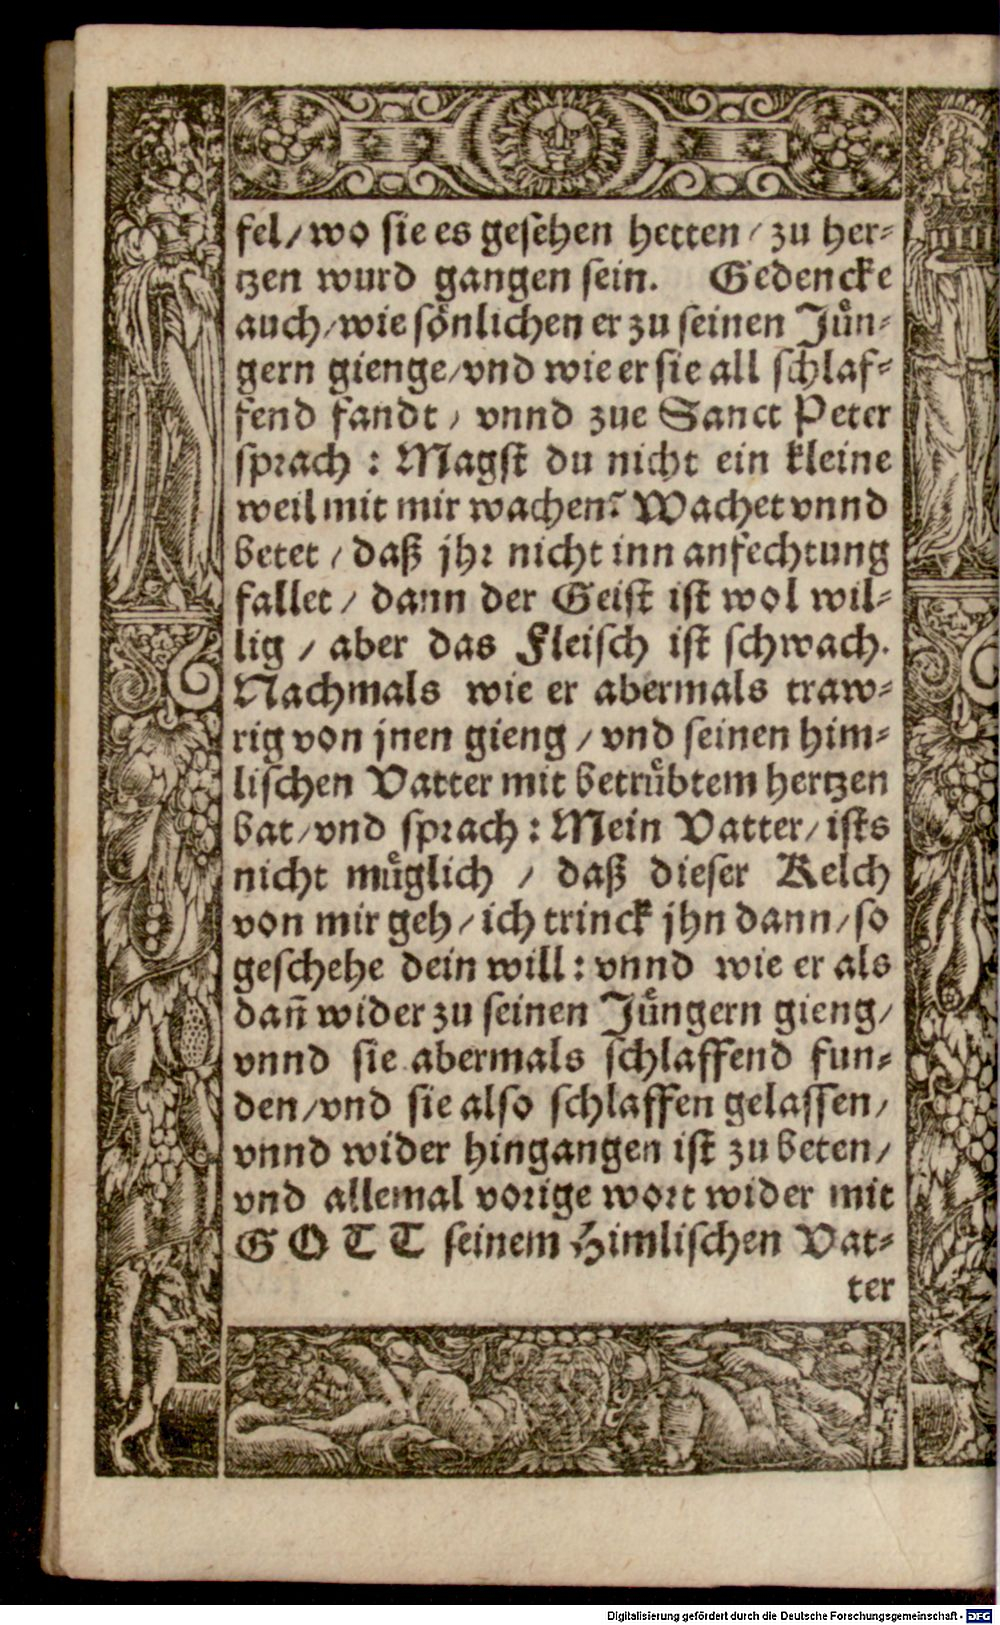 fel/ wo sie es gesehen hetten/ zu her⸗
tzen wurd gangen sein. Gedencke
auch/ wie sönlichen er zu seinen Jüͤn⸗
gern gienge/ vnd wie er sie all schlaf⸗
fend fandt/ vnnd zue Sanct Peter
sprach: Magst du nicht ein kleine
weil mit mir wachen? Wachet vnnd
betet/ daß jhr nicht inn anfechtung
fallet/ dann der Geist ist wol wil⸗
lig/ aber das Fleisch ist schwach.
Nachmals wie er abermals traw⸗
rig von jnen gieng/ vnd seinen him⸗
lischen Vatter mit betrübtem hertzen
bat/ vnd sprach: Mein Vatter/ ists
nicht müglich/ daß dieser Kelch
von mir geh/ ich trinck jhn dann/ so
geschehe dein will: vnnd wie er als
dañ wider zu seinen Jüngern gieng/
vnnd sie abermals schlaffend fun⸗
den/ vnd sie also schlaffen gelassen/
vnnd wider hingangen ist zu beten/
vnd allemal vorige wort wider mit
GOTT seinem Himlischen Vat⸗
ter
Digitalisierung gefördert durch die Deutsche Forschungsgemeinschaft - DFG